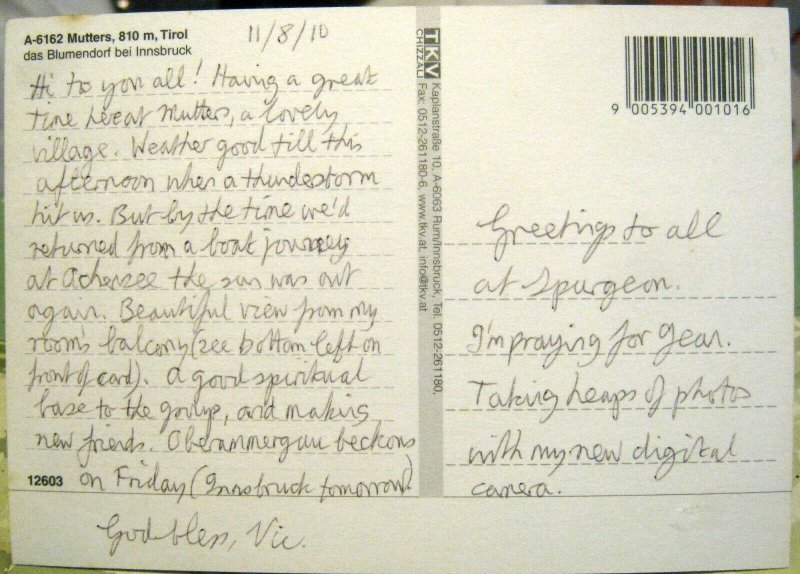 A-6162 Mutters, 810 m, Tirol
das Blumendorf bei Innsbruck
11/8/10
Hi to you all! Having a great
time here at Mutters, a lovely
village. Weather good till this
afternoon when a thunderstorm
hit us. But by the time we'd
returned from a boat journey
at Achensee the sun was out
again. Beautiful view from my
room's balcony (see bottom left on
front of card). A good spiritual
base to the group, and making
new friends. Oberammergau beckons
on Friday (Innsbruck tomorrow)
12603
God bless, Vic.
TKV
CHIZZALI
Kaplanstraße 10, A-6063 Rum/Innsbruck, Tel. 0512-261180,
Fax: 0512-261180-6, www.tkv.at, info@tkv.at
9 005394 001016
Greetings to all
at Spurgeon.
I'm praying for Jean.
Taking heaps of photos
with my new digital
camera.